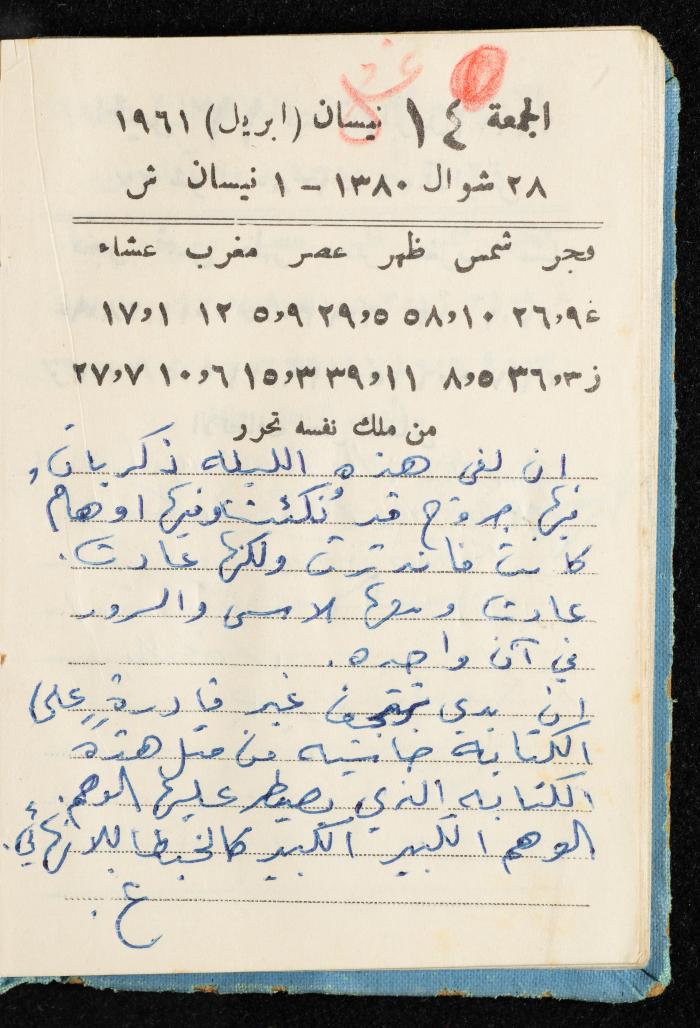 الجمعة ١٤ نيسان (ابريل) ١٩٦١
٢٨ شوال ١٣٨٠ - ١ نيسان ش
فجر شمس ظهر عصر مغرب عشاء
غ ٩,٢٦ ١٠,٥٨ ٥,٢٩ ٩,٥ ١٢ ١,١٧
ز ٣,٣٦ ٥,٨ ١١,٣٩ ٣,١٥ ٦,١٠ ٧,٢٧
من ملك نفسه تحرر
ان لفي هذه الليلة ذكريات,
فيها جروح قد نُكئت وفيها اوهام
كانت فاندثرت ولكنها عادت.
عادت ومعها الاسى والسرور
في آن واحده.
ان يدي ترتجف غير قادرةٍ على
الكتابة خاشيه من مثل هذه
الكتابه الذي يصيطر عليها الوهم.
الوهم الكبير الكبير كالخيط اللانهائي.
غ.